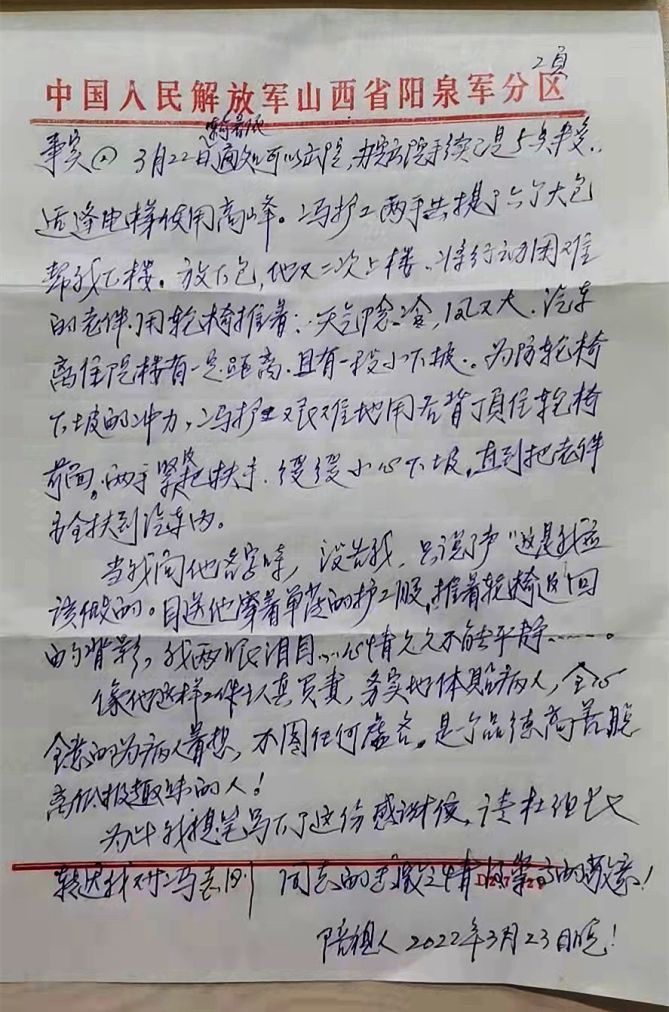 2页
中国人民解放军山西省阳泉军分区
事实(2) 3月22日通知可以出院,办完出院手续已是5点来多.
适逢电梯使用高峰。冯护工两手共提了六个大包
帮我下楼。放下包,他又二次上楼.将行动困难
的老伴用轮椅推着:天气阴冷,风又大.汽车
离住院楼有一定距离.且有一段小下坡.为防轮椅
下坡的冲力,冯护工艰难地用后背顶住轮椅
前面。两手紧把扶手.缓缓小心下坡,直到把老伴
安全扶到汽车内。
当我问他名字时,没告我.只说了声"这是我应
该做的。目送他穿着单薄的护工服,推着轮椅返回
的背影,我两眼泪目…心情久久不能平静……。
像他这样工作认真负责,务实地体贴病人,全心
全意的为病人着想,不图任何虚名。是个品德高尚脱
离低级趣味的人!
为此我提笔写下了这份感谢信,请杜组长
转达我对冯志刚 同志的感激之情 的敬意!
陪视人 2022年3月23日晚!